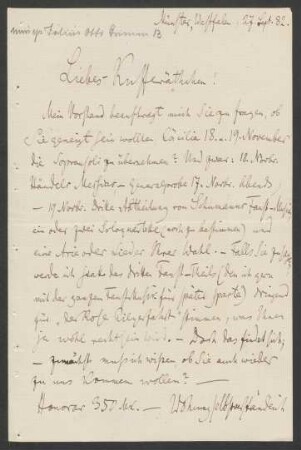 Münster, Westfalen. 27. Sept. 82.
Liebes Kufferäthchen!
Mein Vorstand beauftragt mich Sie zu fragen, ob
Sie geneigt sein wollten Cäcilia 18. u. 19. November
die Sopransoli zu übernehmen? Und zwar: 18. Novbr.
Händels Messias – Generalprobe 17. Novbr. abends
– 19. Novbr. Dritte Abtheilung von Schumanns Faust-Musik
ein oder zwei Solo (noch zu bestimmen) und
eine Arie oder Lieder Ihrer Wahl. – Falls Sie
werde ich statt des dritten Faust-Theils (den ich gern
mit der ganzen Faustmusik für später sparte) dringend
für „der Rose Pilgerfahrt" stimmen, was Ihnen
ja wohl recht sein wird. – Doch das findet sich;
– zunächst muss ich wissen ob Sie auch wieder
zu uns kommen wollen? –
Honorar 350 Mk. –